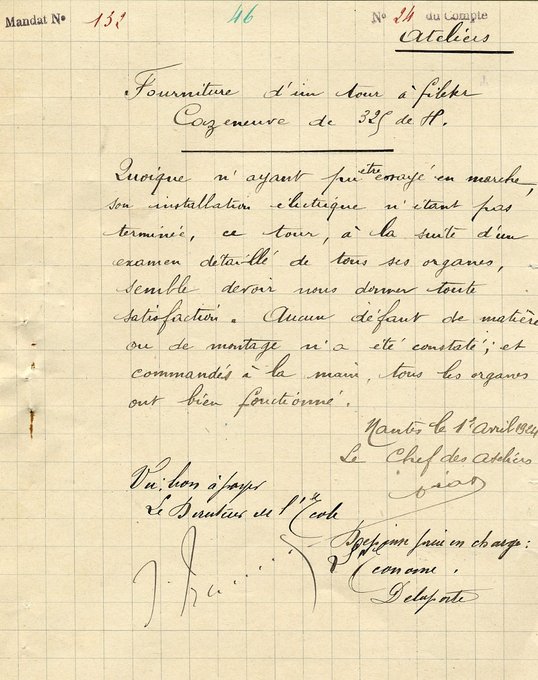 Mandat No 132 46 No 24 du Compte
Ateliers
Fourniture d'un tour à fileter
Cazeneuve de 325 de H.
Quoique n'ayant pu être essayé en marche,
son installation électrique n'étant pas
terminée, ce tour, à la suite d'un
examen détaillé de tous ses organes,
semble devoir nous donner toute
satisfaction. Aucun défaut de matière
ou de montage n'a été constaté; et
commandés à la main, tous les organes
ont bien fonctionné.
Nantes le 1er Avril 1924
Le Chef des Ateliers
Vu: bon à payer
Le Directeur de l'Ecole
prise en charge:
L'Econome.
Delaporte